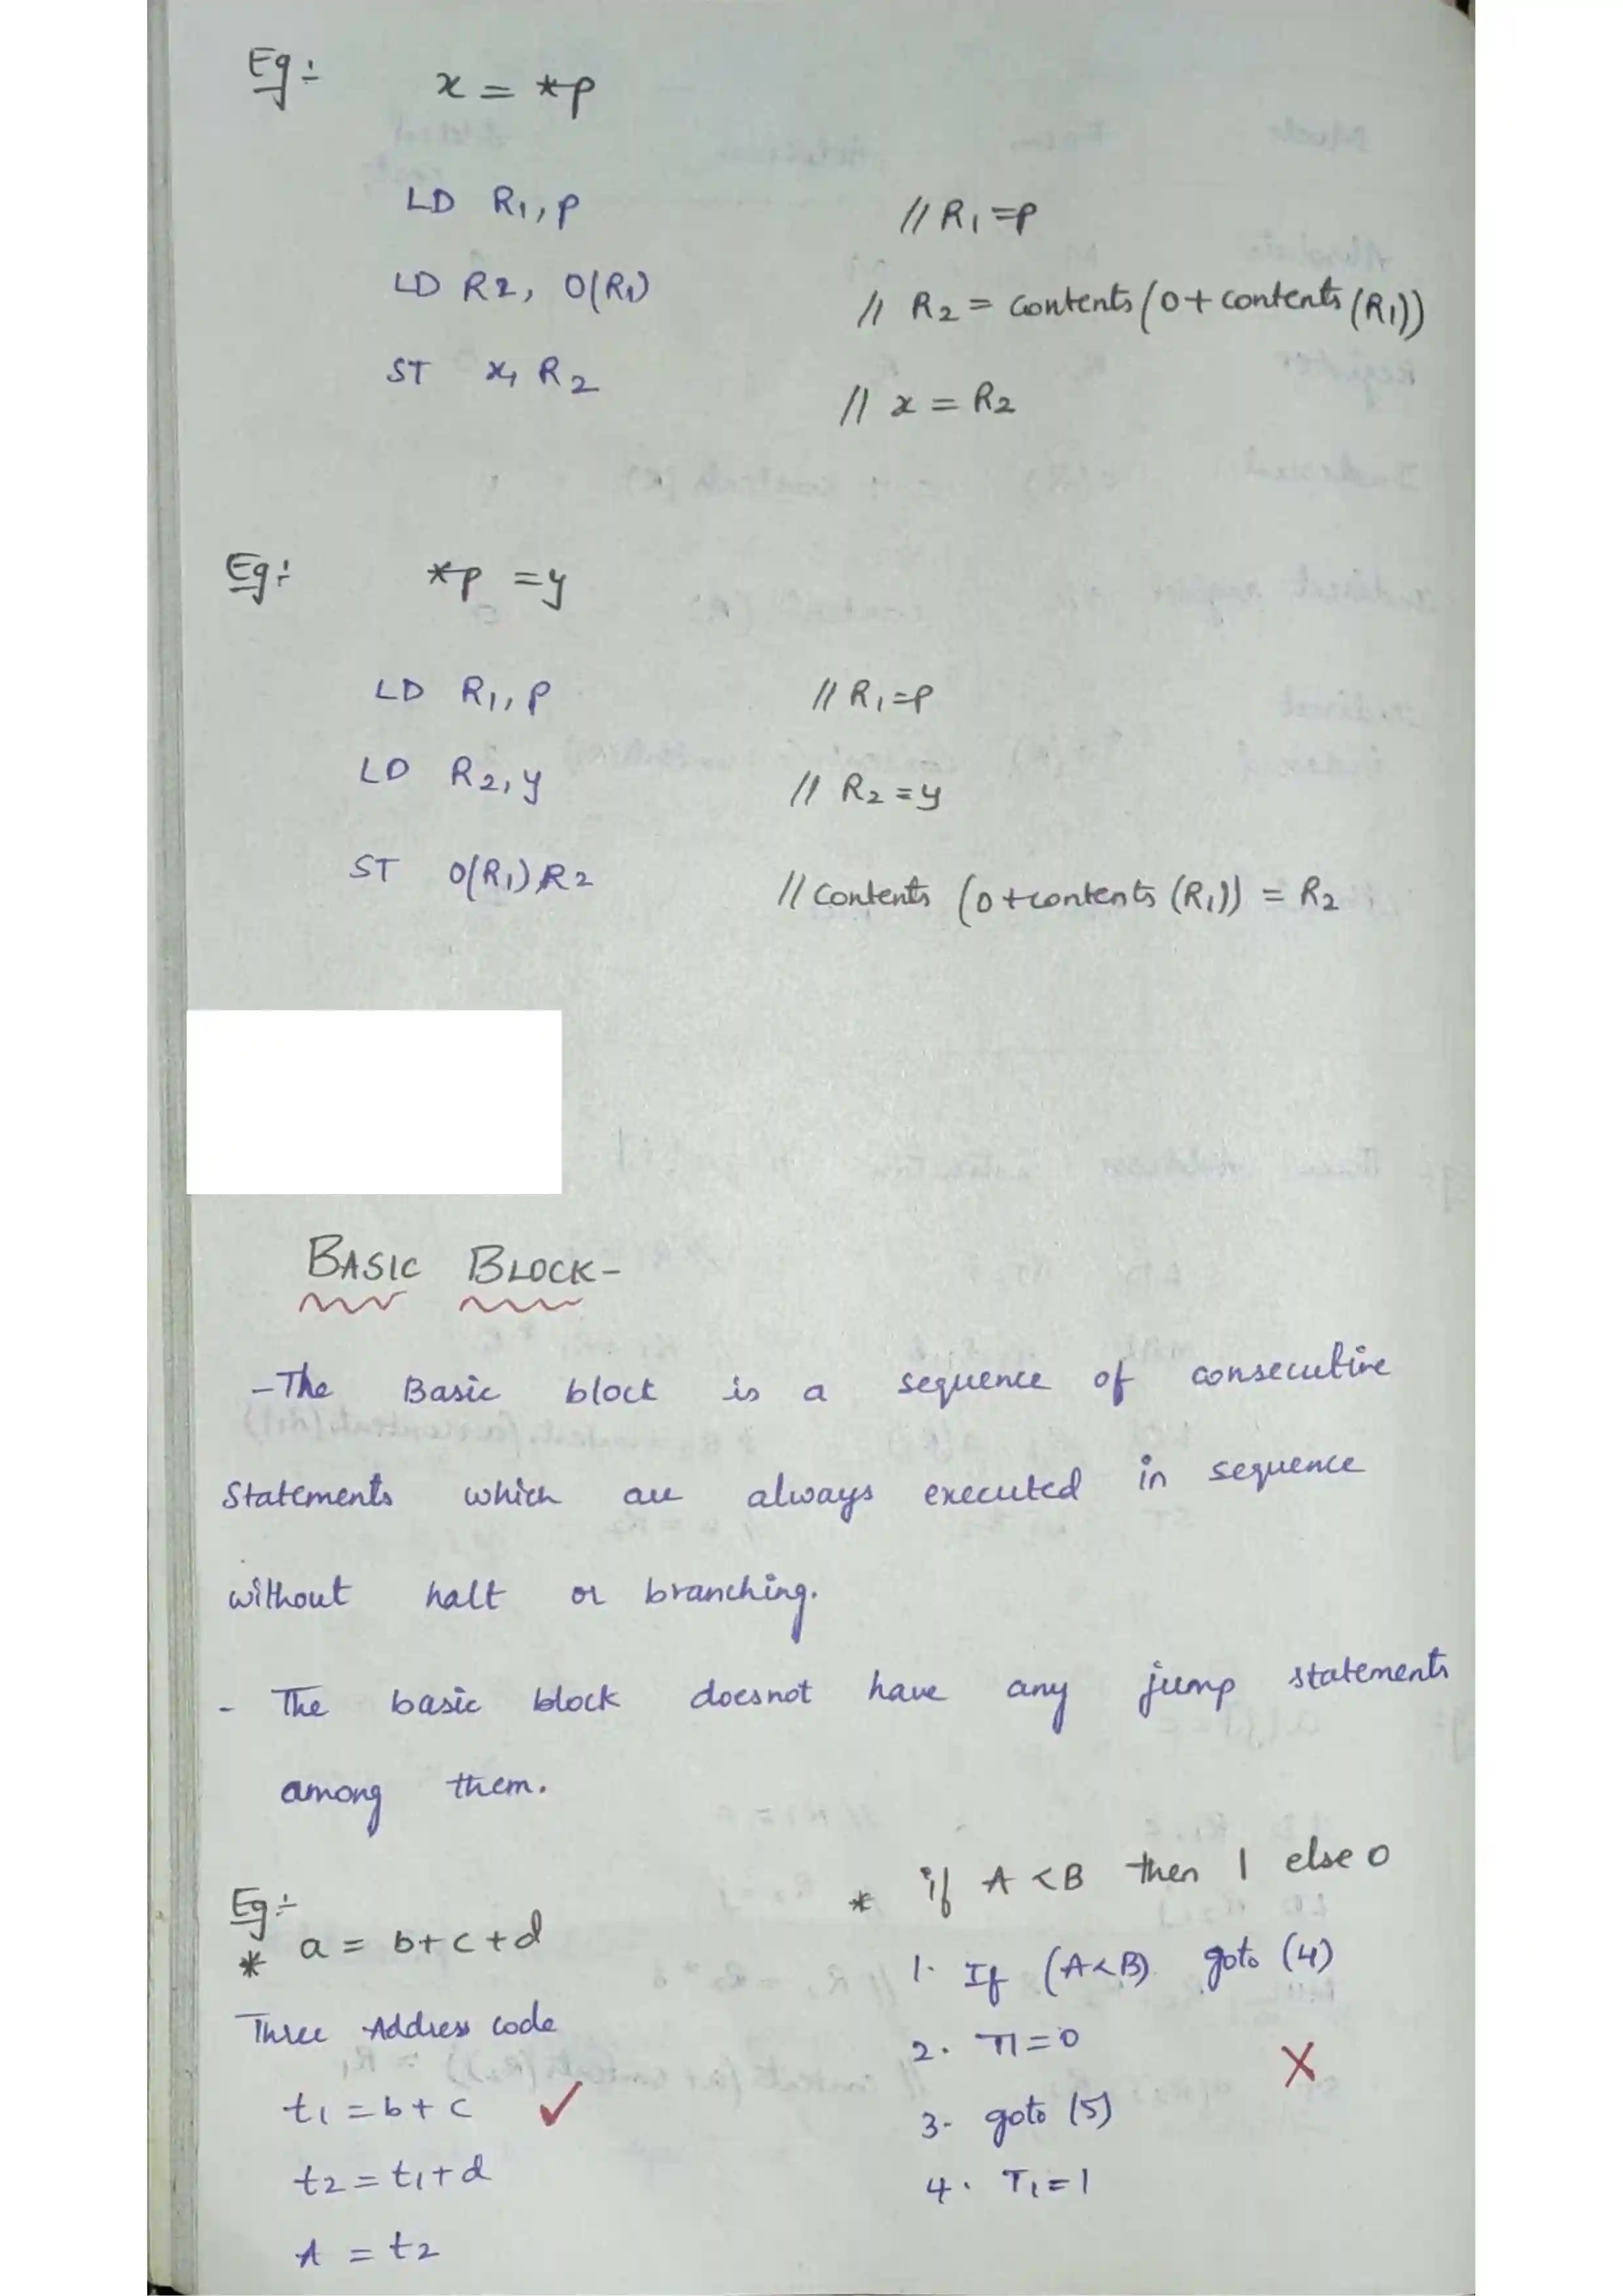 Eg:-
x = *p
LD R1, p // R1 = p
LD R2, 0(R1) // R2 = contents (0 + contents (R1))
ST x, R2 // x = R2
Eg:-
*p = y
LD R1, p // R1 = p
LD R2, y // R2 = y
ST 0(R1), R2 // contents (0 + contents (R1)) = R2
BASIC BLOCK-
- The Basic block is a sequence of consecutive
statements which are always executed in sequence
without halt or branching.
- The basic block doesnot have any jump statements
among them.
Eg:-
* a = b+c+d
Three Address code
t1 = b+c ✓
t2 = t1+d
A = t2
* if A <B then 1 else 0
1. If (A<B) goto (4)
2. T1=0
X
3. goto (5)
4. T1=1